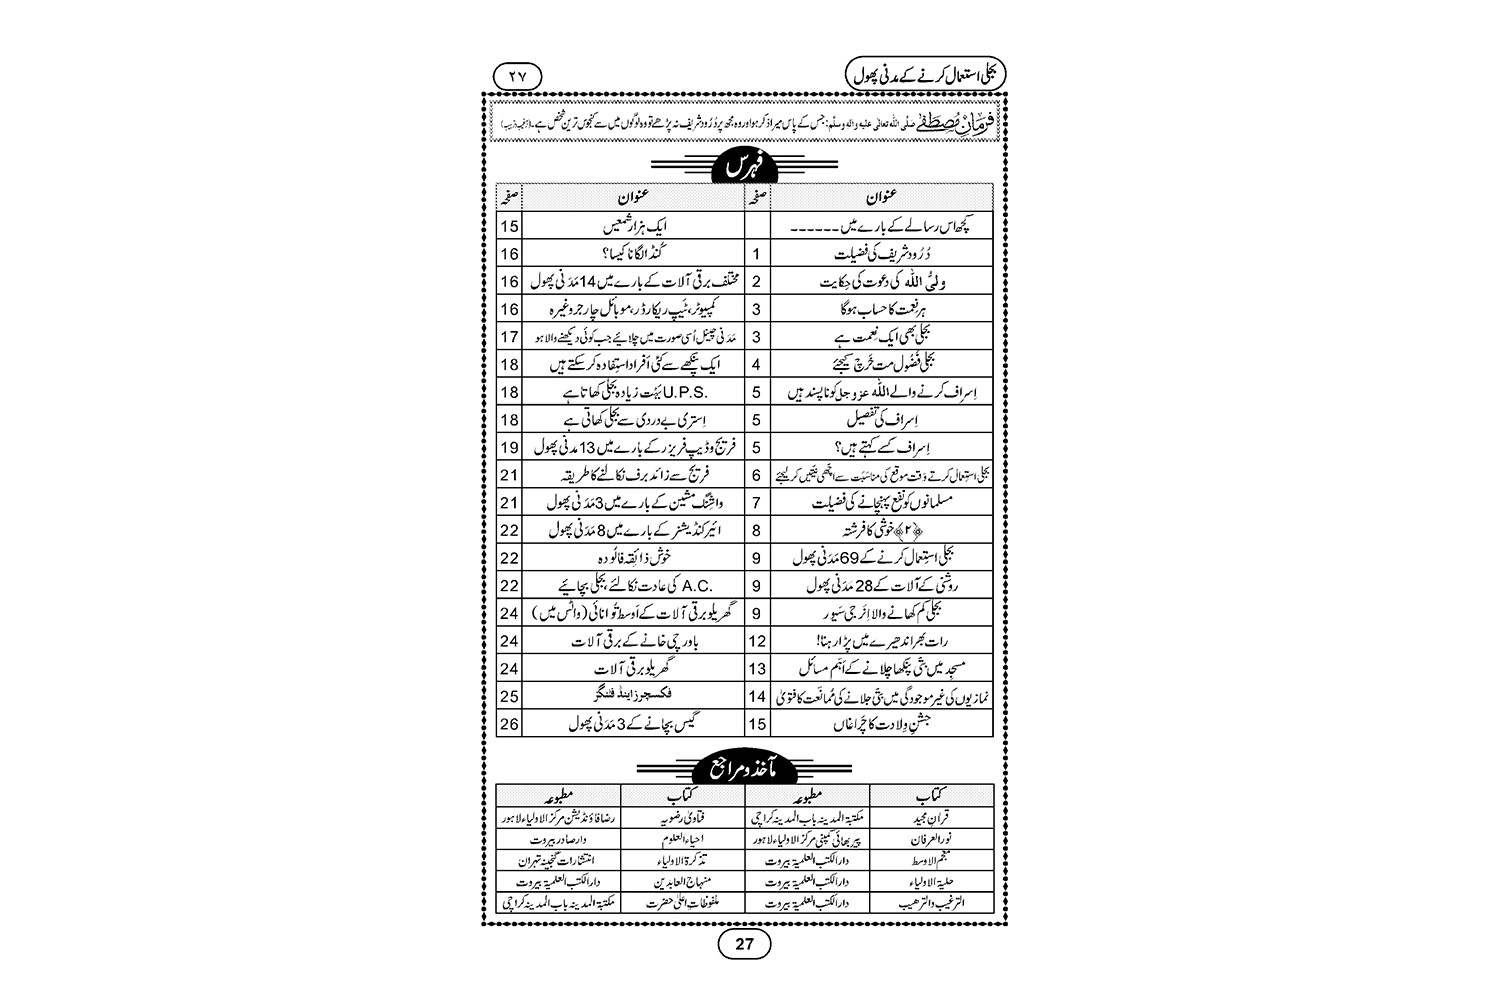 بجلی استعمال کرنے کے مدنی پھول ۲۷
فرمانِ مُصطَفٰے صلَّی اللہ تعالٰی علیہ واٰلہٖ وسلَّم: جس کے پاس میرا ذکر ہو اور وہ مجھ پر دُرُود شریف نہ پڑھے تو وہ لوگوں میں سے کنجوس ترین شخص ہے۔
فہرس
عنوان صفحہ عنوان صفحہ
کچھ اس رسالے کے بارے میں ۔۔۔۔۔۔ ایک ہزار شمعیں 15
دُرُود شریف کی فضیلت 1 کُنڈا لگانا کیسا؟ 16
ولیُّ اللہ کی دعوت کی حِکایت 2 مختلف برقی آلات کے بارے میں 14 مَدَنی پھول 16
ہر نعمت کا حساب ہوگا 3 کمپیوٹر، ٹَیپ ریکارڈر، موبائل چارجر وغیرہ 16
بجلی بھی ایک نِعمت ہے 3 مَدَنی چینل اُسی صورت میں چلائیے جب کوئی دیکھنے والا ہو 17
بجلی فُضُول مت خَرچ کیجئے 4 ایک پنکھے سے کئی اَفراد استِفادہ کر سکتے ہیں 18
اِسراف کرنے والے اللہ عزوجل کو ناپسند ہیں 5 U.P.S. بَہُت زیادہ بجلی کھاتا ہے 18
اِسراف کی تفصیل 5 اِستری بے دردی سے بجلی کھاتی ہے 18
اِسراف کسے کہتے ہیں؟ 5 فریج و ڈیپ فریزر کے بارے میں 13 مدنی پھول 19
بجلی استعمال کرتے وَقت موقع کی مناسَبَت سے اچّھی نیّتیں کر لیجئے 6 فریج سے زائد برف نکالنے کا طریقہ 21
مسلمانوں کو نفع پہنچانے کی فضیلت 7 واشنگ مشین کے بارے میں 3 مَدَنی پھول 21
﴿۲﴾ خوشی کا فرشتہ 8 ائیر کنڈیشنر کے بارے میں 8 مَدَنی پھول 22
بجلی استِعمال کرنے کے 69 مَدَنی پھول 9 خوش ذائِقہ فالُودہ 22
روشنی کے آلات کے 28 مَدَنی پھول 9 A.C. کی عادت نکالئے، بجلی بچائیے 22
بجلی کم کھانے والا اِنَرجی سَیور 9 گھریلو برقی آلات کے اَوسط تُوانائی (واٹس میں) 24
رات بھر اندھیرے میں پڑا رہنا! 12 باورچی خانے کے برقی آلات 24
مسجِد میں بتّی پنکھا چلانے کے اَہَم مسائل 13 گھریلو برقی آلات 24
نَمازیوں کی غیر موجودگی میں بتّی جلانے کی مُمانَعت کا فتویٰ 14 فکسچرز اینڈ فٹنگز 25
جشنِ وِلادت کا چَراغاں 15 گیس بچانے کے 3 مَدَنی پھول 26
مآخذ و مراجع
کتاب مطبوعہ کتاب مطبوعہ
قراٰنِ مجید مکتبۃ المدینہ باب المدینہ کراچی فتاویٰ رضویہ رضا فاؤنڈیشن مرکز الاولیاء لاہور
نور العرفان پیر بھائی کمپنی مرکز الاولیاء لاہور احیاء العلوم دار صادر بیروت
معجم الاوسط دار الکتب العلمیۃ بیروت تذکرۃ الاولیاء انتشارات گنجینہ تہران
حلیۃ الاولیاء دار الکتب العلمیۃ بیروت منہاج العابدین دار الکتب العلمیۃ بیروت
الترغیب والترھیب دار الکتب العلمیۃ بیروت ملفوظاتِ اعلیٰ حضرت مکتبۃ المدینہ باب المدینہ کراچی
27